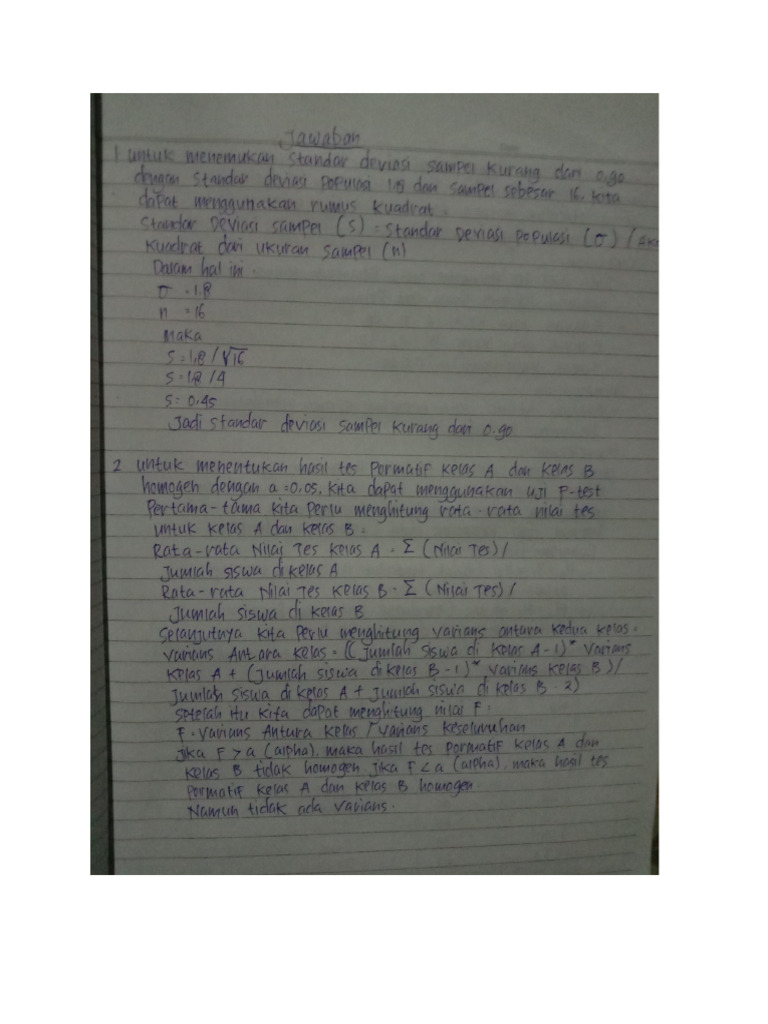 Jawaban
1 untuk menemukan Standar deviasi sampel kurang dari 0.90
dengan Standar deviasi populasi 1,8 dan sampel sebesar 16. kita
dapat menggunakan rumus kuadrat.
Standar Deviasi sampel (s) = Standar Deviasi Populasi (σ) /
Kuadrat dari ukuran sampel (n)
Dalam hal ini.
σ = 1.8
n = 16
Maka
S = 1,8 / √16
S = 1,8 / 4
S = 0.45
Jadi standar deviasi sampel kurang dari 0.90
2 untuk menentukan hasil tes Formatif kelas A dan kelas B
homogen dengan a = 0.05, kita dapat menggunakan uji F-test
Pertama-tama kita perlu menghitung rata-rata nilai tes
untuk kelas A dan kelas B.
Rata-rata Nilai Tes kelas A = Σ (Nilai Tes) /
Jumlah siswa di kelas A
Rata-rata Nilai Tes kelas B = Σ (Nilai Tes) /
Jumlah siswa di kelas B
Selanjutnya kita perlu menghitung varians antara kedua kelas =
Varians Antara kelas = ((Jumlah siswa di kelas A - 1) * varians
kelas A + (Jumlah siswa di kelas B - 1) * varians kelas B) /
Jumlah siswa di kelas A + Jumlah siswa di kelas B - 2)
Setelah itu kita dapat menghitung nilai F.
F = Varians Antara kelas / varians keseluruhan
Jika F > a (alpha), maka hasil tes Formatif kelas A dan
kelas B tidak homogen Jika F < a (alpha), maka hasil tes
Formatif kelas A dan kelas B homogen.
Namun tidak ada varians.